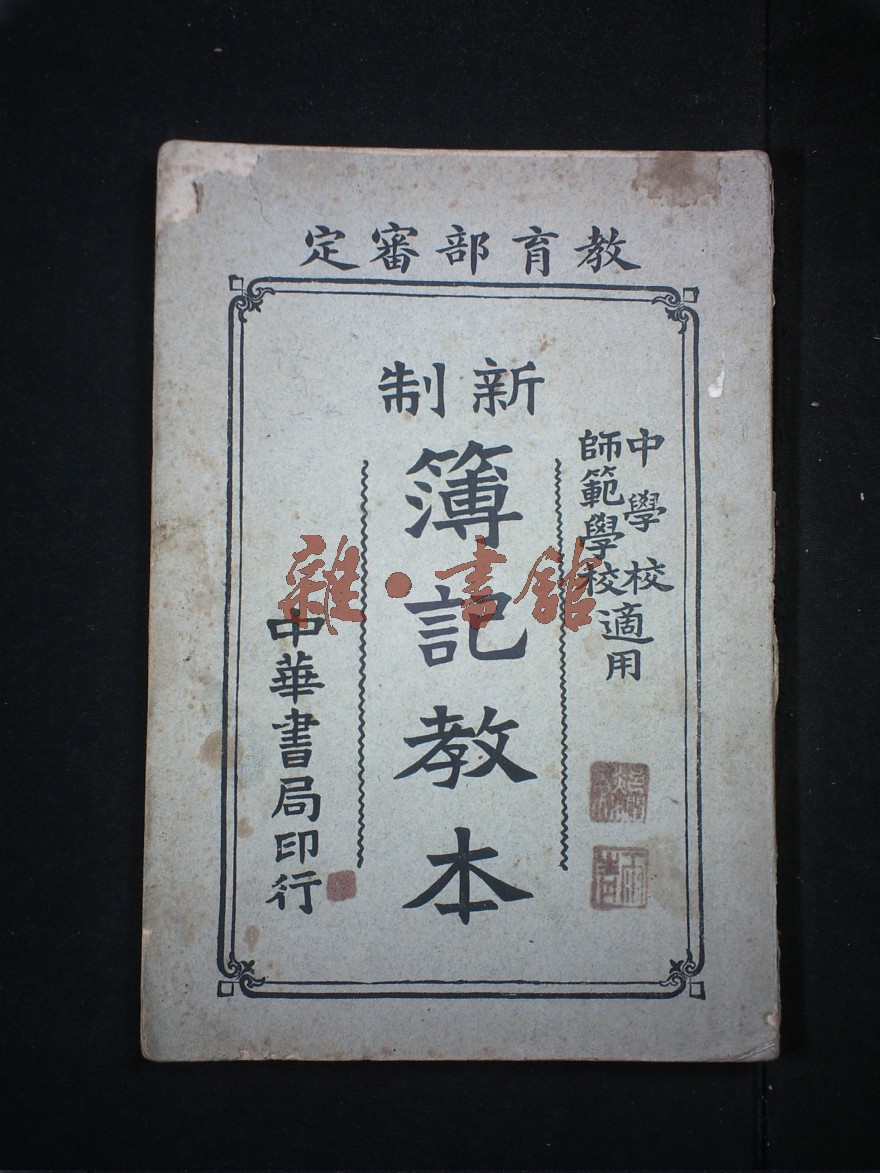 教育部審定
中學校
師範學校
適用
新制
簿記教本
中華書局印行
雜·書館